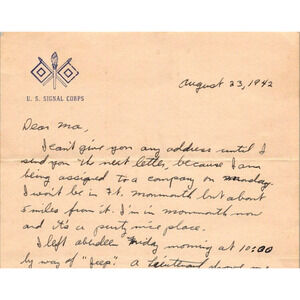 U. S. SIGNAL CORPS
August 23, 1942
Dear Ma,
I can't give you any address until I
send you the next letter, because I am
being assigned to a company on Monday.
I won't be in Ft. Monmouth but about
5 miles from it. I'm in monmouth now
and it's a purty nice place.
I left aberdeen Friday morning at 10:00
by way of "Jeep". A lieutenant drove me